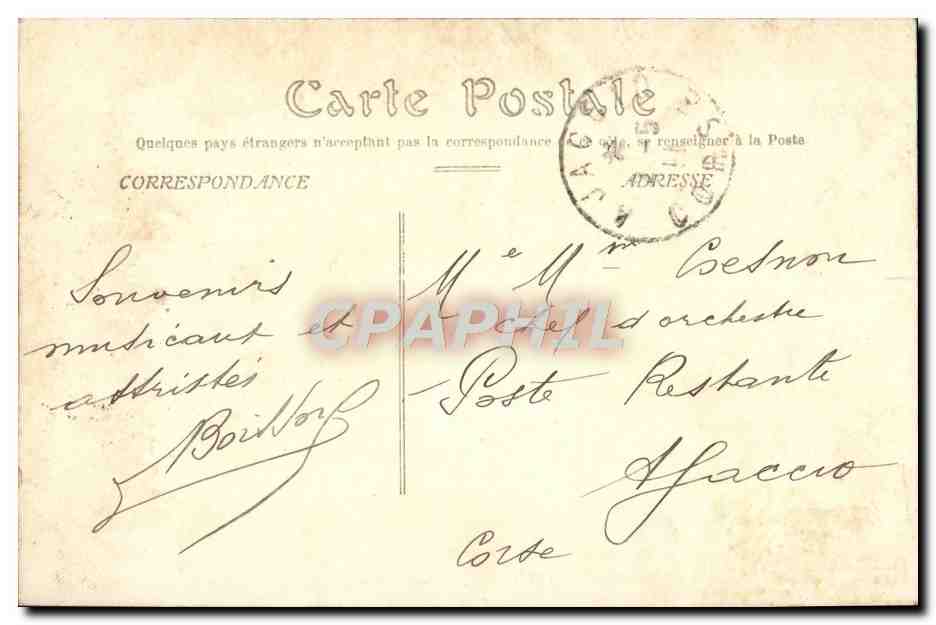 Carte Postale
Quelques pays étrangers n'acceptant pas la correspondance toile, se renseigner à la Poste
CORRESPONDANCE
ADRESSE
AJACCIO
CORSE
Souvenirs
musicaux et
attristés
Me Mm
chef d'orchestre
Poste Restante
Ajaccio
Corse
CPAPHIL